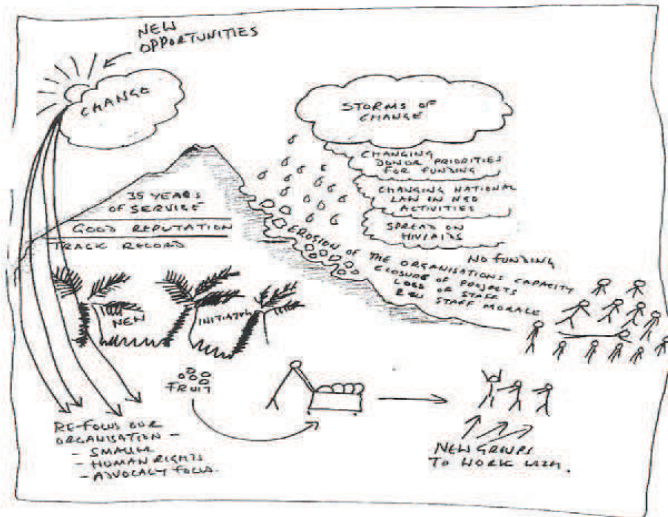 NEW
OPPORTUNITIES
CHANGE
STORMS OF
CHANGE
CHANGING
DONOR PRIORITIES
FOR FUNDING
CHANGING NATIONAL
LAW ON NGO
ACTIVITIES
SPREAD ON
HIV/AIDS
35 YEARS
OF SERVICE
GOOD REPUTATION
TRACK RECORD
NO FUNDING
EROSION OF THE ORGANISATIONS CAPACITY
CLOSURE OF PROJECTS
LOSS OF STAFF
LOW STAFF MORALE
NEW
FRUIT
RE-FOCUS OUR
ORGANISATION -
- SMALLER
- HUMAN RIGHTS
- ADVOCACY FOCUS.
NEW GROUPS
TO WORK WITH.